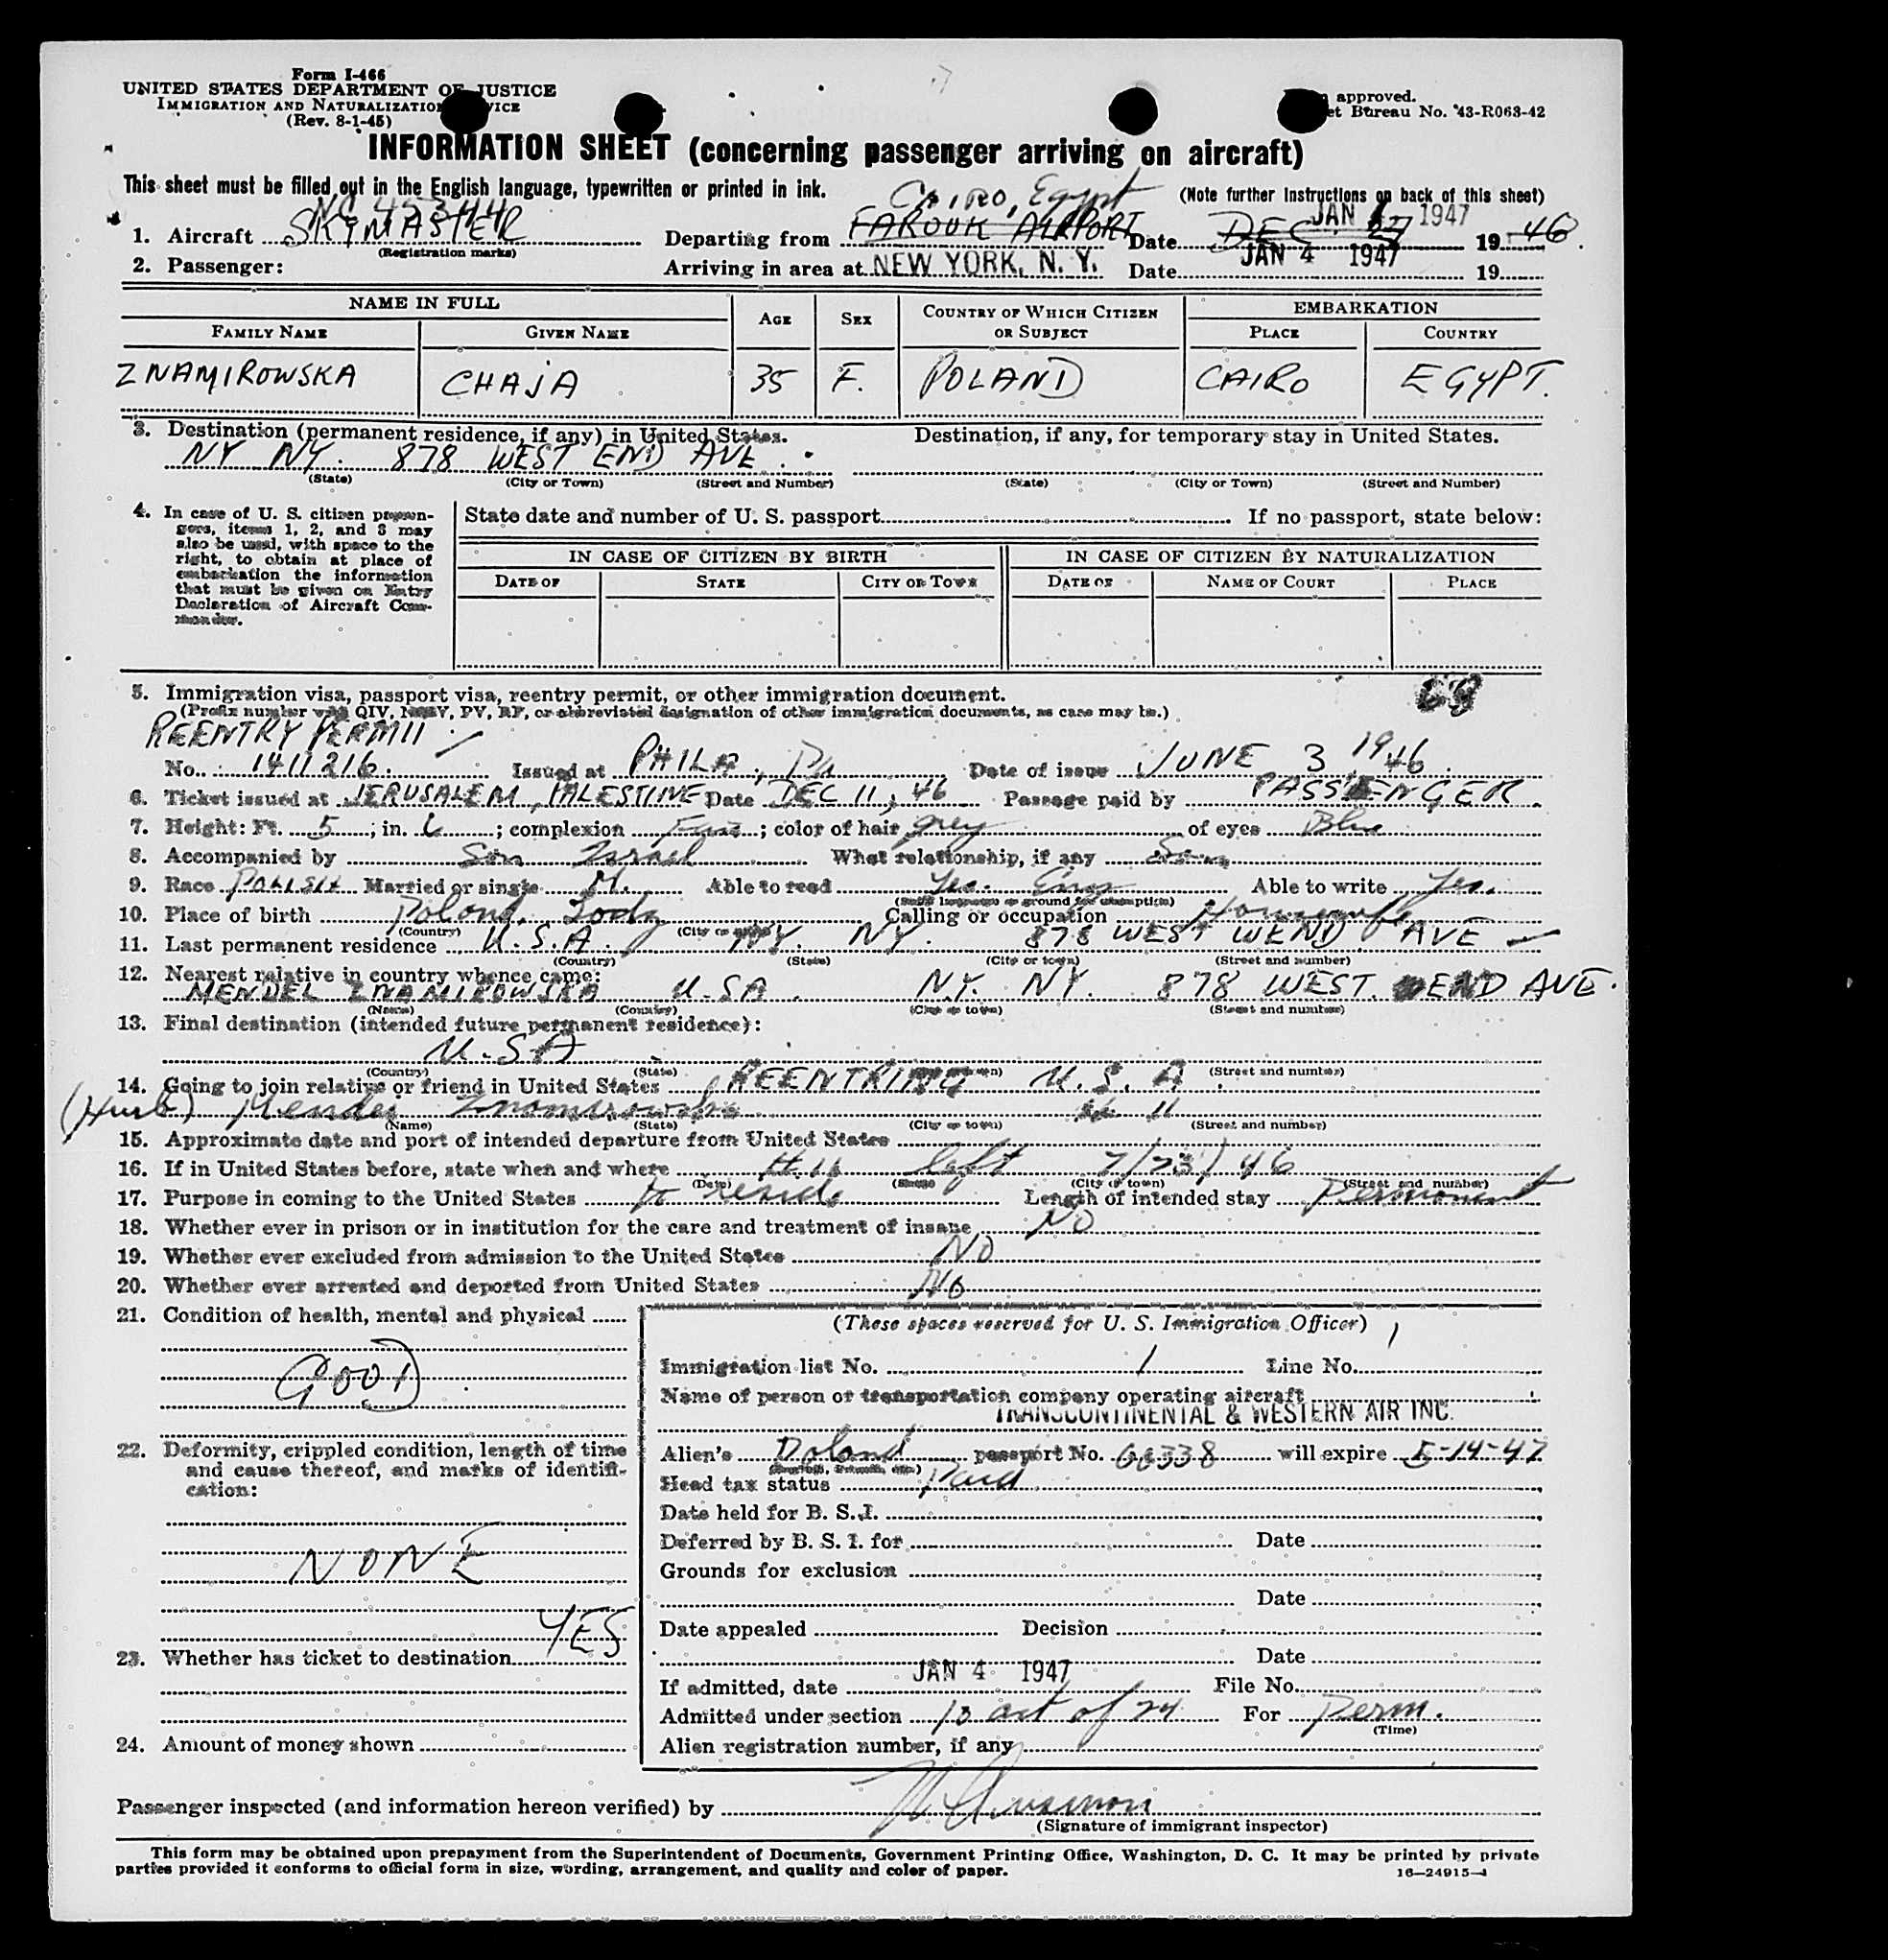 Form I-466
UNITED STATES DEPARTMENT OF JUSTICE
IMMIGRATION AND NATURALIZATION SERVICE
(Rev. 8-1-45)
approved.
et Bureau No. 43-R063-42
INFORMATION SHEET (concerning passenger arriving on aircraft)
This sheet must be filled out in the English language, typewritten or printed in ink.
(Note further instructions on back of this sheet)
Cairo, Egypt
JAN 1947
1. Aircraft SKYMASTER Departing from FAROUK AIRPORT Date DEC 27 1946.
(Registration marks)
2. Passenger: Arriving in area at NEW YORK, N. Y. Date JAN 4 1947 19
NAME IN FULL AGE SEX COUNTRY OF WHICH CITIZEN OR SUBJECT EMBARKATION
FAMILY NAME GIVEN NAME PLACE COUNTRY
ZNAMIROWSKA CHAJA 35 F. POLAND CAIRO EGYPT.
3. Destination (permanent residence, if any) in United States. Destination, if any, for temporary stay in United States.
NY NY. 878 WEST END AVE.
(State) (City or Town) (Street and Number) (State) (City or Town) (Street and Number)
4. In case of U. S. citizen passengers, items 1, 2, and 3 may also be used, with space to the right, to obtain at place of embarkation the information that must be given on Entry Declaration of Aircraft Commander.
State date and number of U. S. passport If no passport, state below:
IN CASE OF CITIZEN BY BIRTH IN CASE OF CITIZEN BY NATURALIZATION
DATE OF STATE CITY OR TOWN DATE OF NAME OF COURT PLACE
5. Immigration visa, passport visa, reentry permit, or other immigration document.
(Prefix number with QIV, NQIV, PV, RP, or abbreviated designation of other immigration documents, as case may be.)
REENTRY PERMIT
No. 1411216. Issued at PHILA, Pa Date of issue JUNE 3 1946.
6. Ticket issued at JERUSALEM, PALESTINE Date DEC 11, 46 Passage paid by PASSENGER.
7. Height: Ft. 5; in. 6; complexion Fair; color of hair grey of eyes Blue
8. Accompanied by Son Israel What relationship, if any Son
9. Race POLISH Married or single M. Able to read Yes. Eng Able to write Yes.
(State language or ground for exemption)
10. Place of birth Poland, Lodz Calling or occupation Housewife
(Country) (City or town)
11. Last permanent residence U.S.A. NY. NY. 878 WEST WEND AVE
(Country) (State) (City or town) (Street and number)
12. Nearest relative in country whence came:
MENDEL ZNAMIROWSKA U.SA. N.Y. NY. 878 WEST. END AVE.
(Name) (Country) (City or town) (Street and number)
13. Final destination (intended future permanent residence):
U.SA
(Country) (State) (City or town) (Street and number)
14. Going to join relative or friend in United States REENTRING U.S.A.
(Husb) Mendel Znamirowska # 11
(Name) (State) (City or town) (Street and number)
15. Approximate date and port of intended departure from United States
16. If in United States before, state when and where # 11 left 7/23/46
(Date) (State) (City or town) (Street and number)
17. Purpose in coming to the United States to reside Length of intended stay Permanent
18. Whether ever in prison or in institution for the care and treatment of insane NO
19. Whether ever excluded from admission to the United States NO
20. Whether ever arrested and deported from United States NO
21. Condition of health, mental and physical
GOOD
22. Deformity, crippled condition, length of time and cause thereof, and marks of identification:
NONE
YES
23. Whether has ticket to destination
24. Amount of money shown
(These spaces reserved for U. S. Immigration Officer)
Immigration list No. 1 Line No. 1
Name of person or transportation company operating aircraft
TRANSCONTINENTAL & WESTERN AIR INC.
Alien's Poland passport No. 66338 will expire 5-14-47
Head tax status Paid
Date held for B. S. I.
Deferred by B. S. I. for Date
Grounds for exclusion
Date
Date appealed Decision
Date
If admitted, date JAN 4 1947 File No.
Admitted under section 13 act of 24 For Perm.
(Time)
Alien registration number, if any
Passenger inspected (and information hereon verified) by
(Signature of immigrant inspector)
This form may be obtained upon prepayment from the Superintendent of Documents, Government Printing Office, Washington, D. C. It may be printed by private
parties provided it conforms to official form in size, wording, arrangement, and quality and color of paper.
16—24915-1